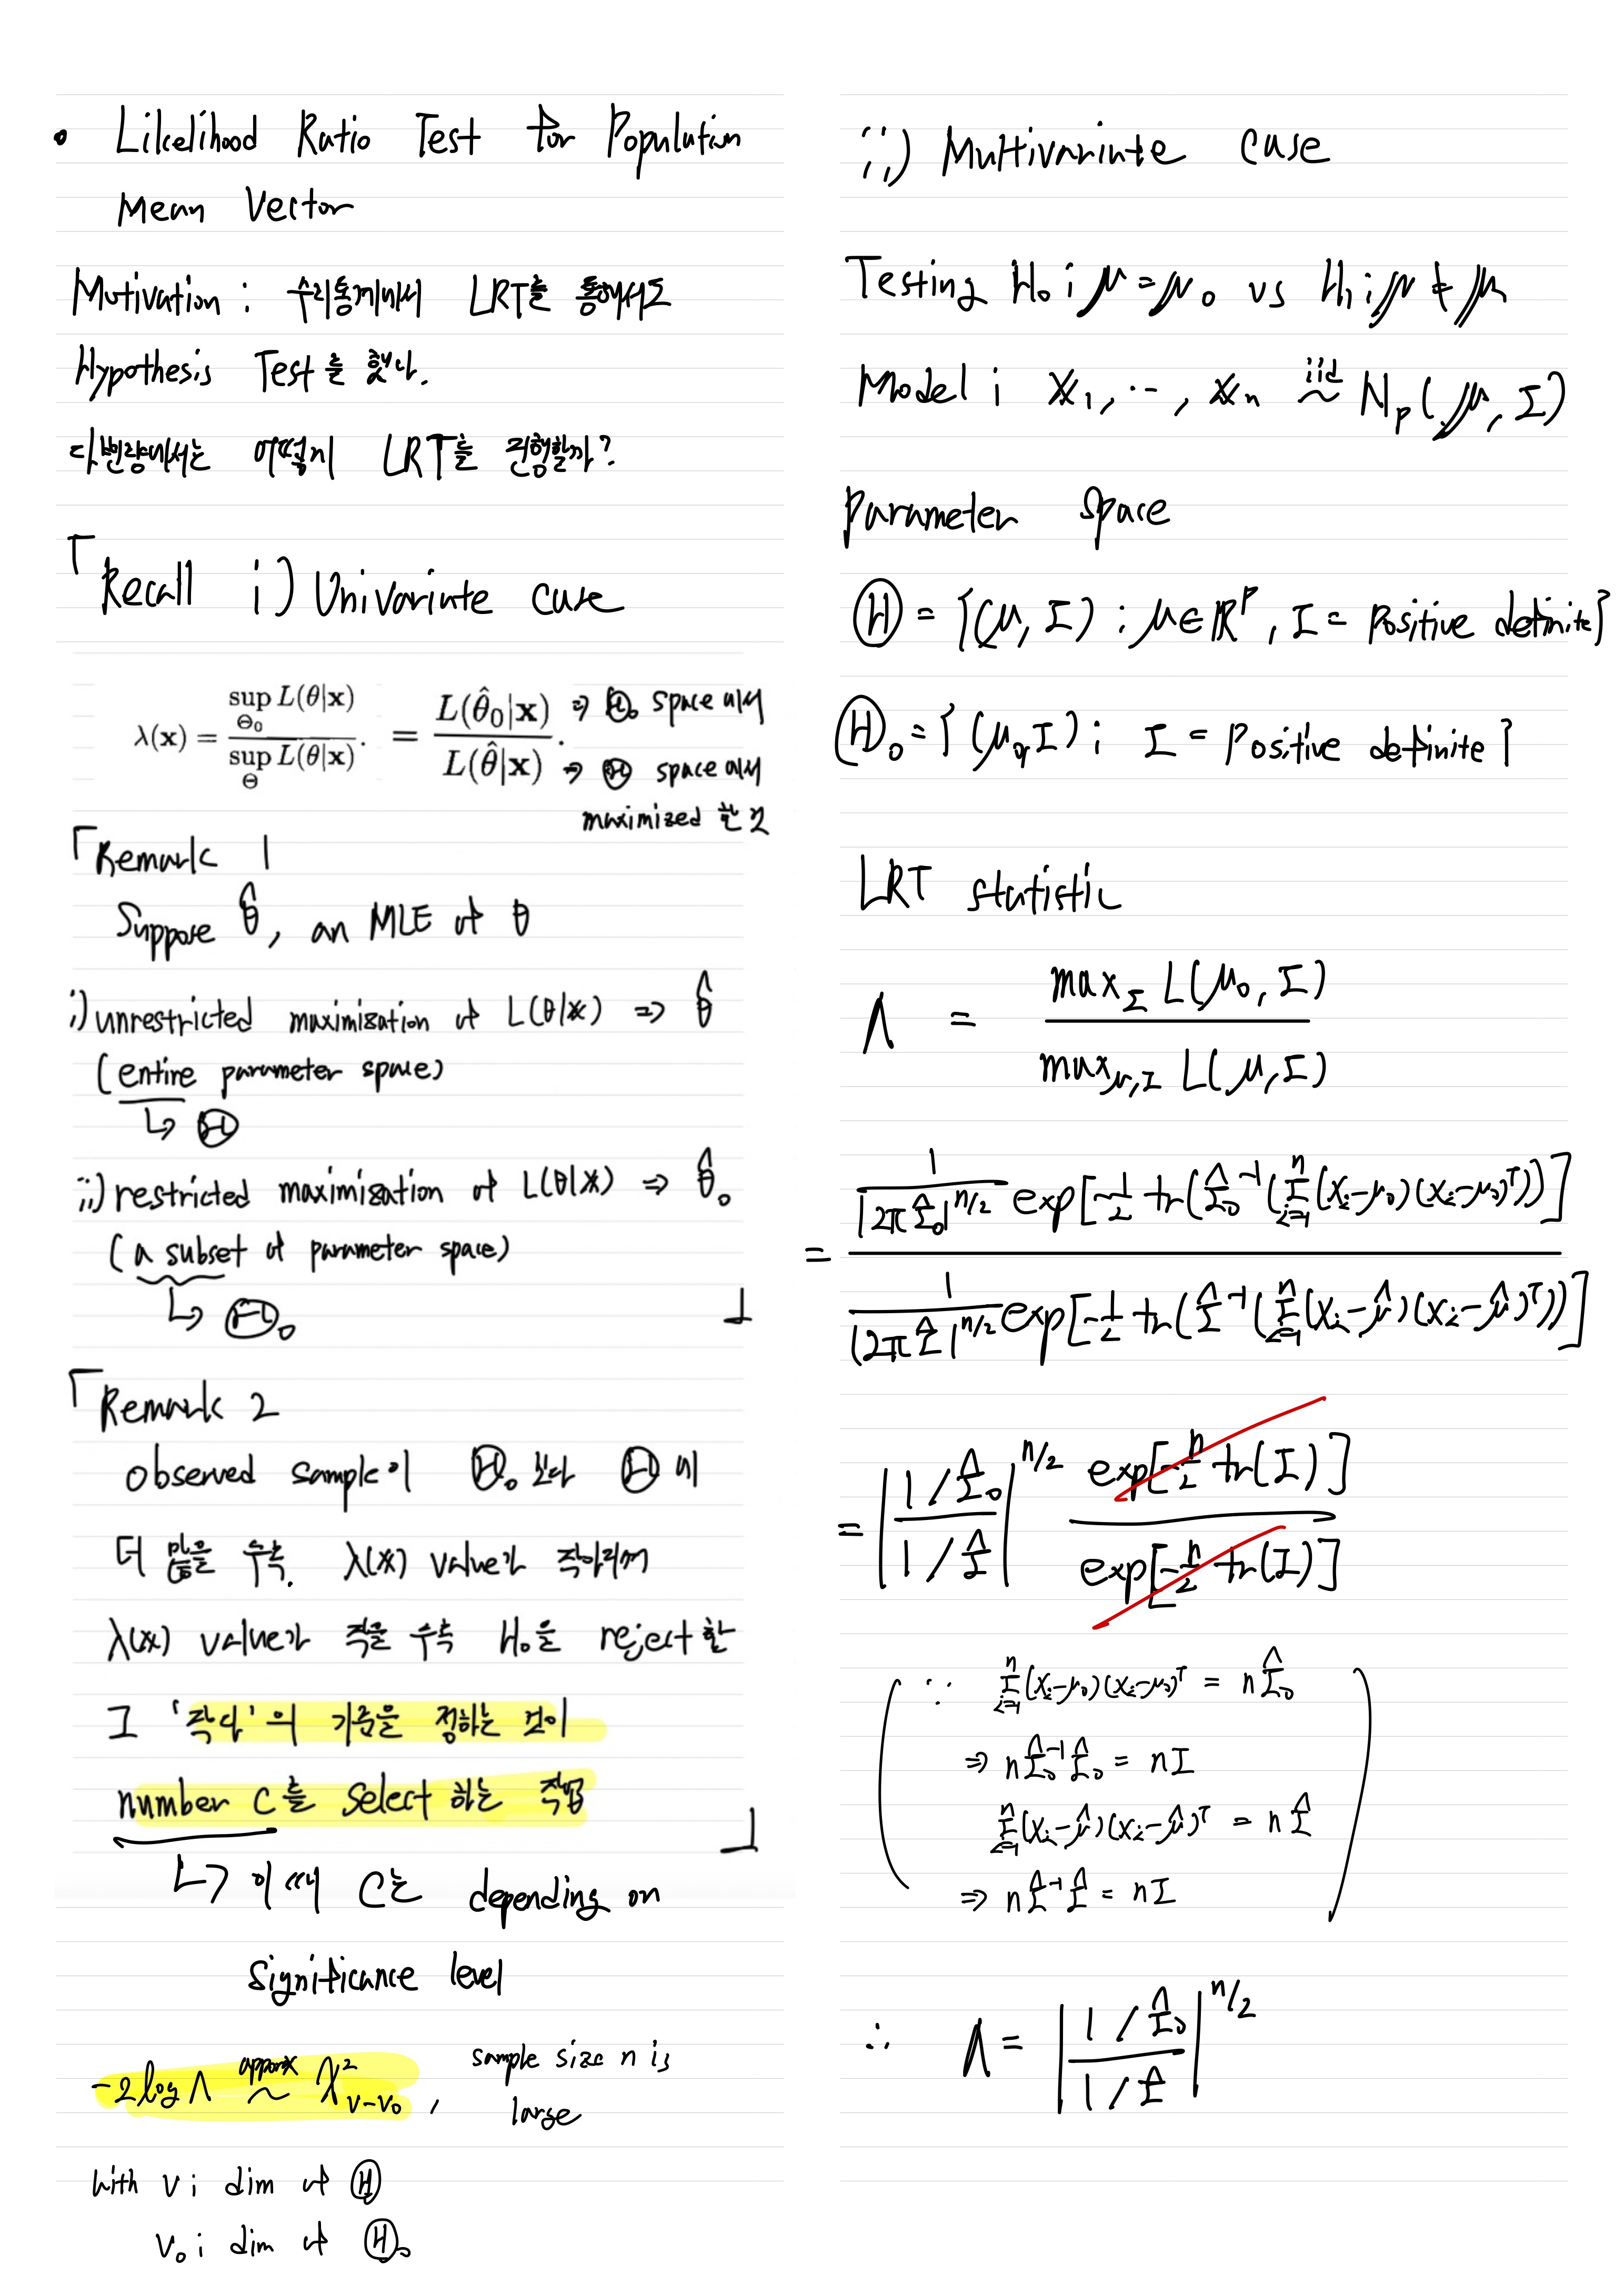 • Likelihood Ratio Test for Population
Mean Vector
Motivation : 수리통계에서 LRT를 통해서도
Hypothesis Test를 했다.
다변량에서는 어떻게 LRT를 진행할까?
「Recall i) Univariate case
λ(x) = sup_Θ₀ L(θ|x) / sup_Θ L(θ|x). = L(θ̂₀|x) / L(θ̂|x).
⇒ Ⓗ₀ space에서
⇒ Ⓗ space에서
maximized 한 것
「Remark 1
Suppose θ̂, an MLE of θ
i) unrestricted maximization of L(θ|x) ⇒ θ̂
(entire parameter space)
↳ Ⓗ
ii) restricted maximization of L(θ|x) ⇒ θ̂₀
(a subset of parameter space)
↳ Ⓗ₀ 」
「Remark 2
observed sample이 Ⓗ₀ 보다 Ⓗ에
더 많을 수록. λ(x) value가 작아지며
λ(x) value가 작을 수록 H₀을 reject 함
그 '작다'의 기준을 정하는 것이
number c를 select 하는 작업 」
↳ 이때 C는 depending on
significance level
-2 log Λ approx ~ χ²_{ν-ν₀} , sample size n is
large
with ν ; dim of Ⓗ
ν₀ ; dim of Ⓗ₀
ii) Multivariate case
Testing H₀ ; μ = μ₀ vs H₁ ; μ ≠ μ₀
Model ; X₁, ⋯, Xn iid ~ Np(μ, Σ)
parameter space
Ⓗ = {(μ, Σ) ; μ ∈ ℝᵖ, Σ = positive definite}
Ⓗ₀ = {(μ₀, Σ) ; Σ = positive definite}
LRT statistic
Λ = max_Σ L(μ₀, Σ) / max_{μ,Σ} L(μ, Σ)
= 1/|2πΣ̂₀|^{n/2} exp[-1/2 tr(Σ̂₀⁻¹(Σ_{i=1}^n (xi-μ₀)(xi-μ₀)ᵀ))]
/ 1/|2πΣ̂|^{n/2} exp[-1/2 tr(Σ̂⁻¹(Σ_{i=1}^n (xi-μ̂)(xi-μ̂)ᵀ))]
= |(1/Σ̂₀) / (1/Σ̂)|^{n/2} exp[-n/2 tr(I)] / exp[-n/2 tr(I)]
(∵ Σ_{i=1}^n (xi-μ₀)(xi-μ₀)ᵀ = nΣ̂₀
⇒ nΣ̂₀⁻¹Σ̂₀ = nI
Σ_{i=1}^n (xi-μ̂)(xi-μ̂)ᵀ = nΣ̂
⇒ nΣ̂⁻¹Σ̂ = nI)
∴ Λ = |(1/Σ̂₀) / (1/Σ̂)|^{n/2}